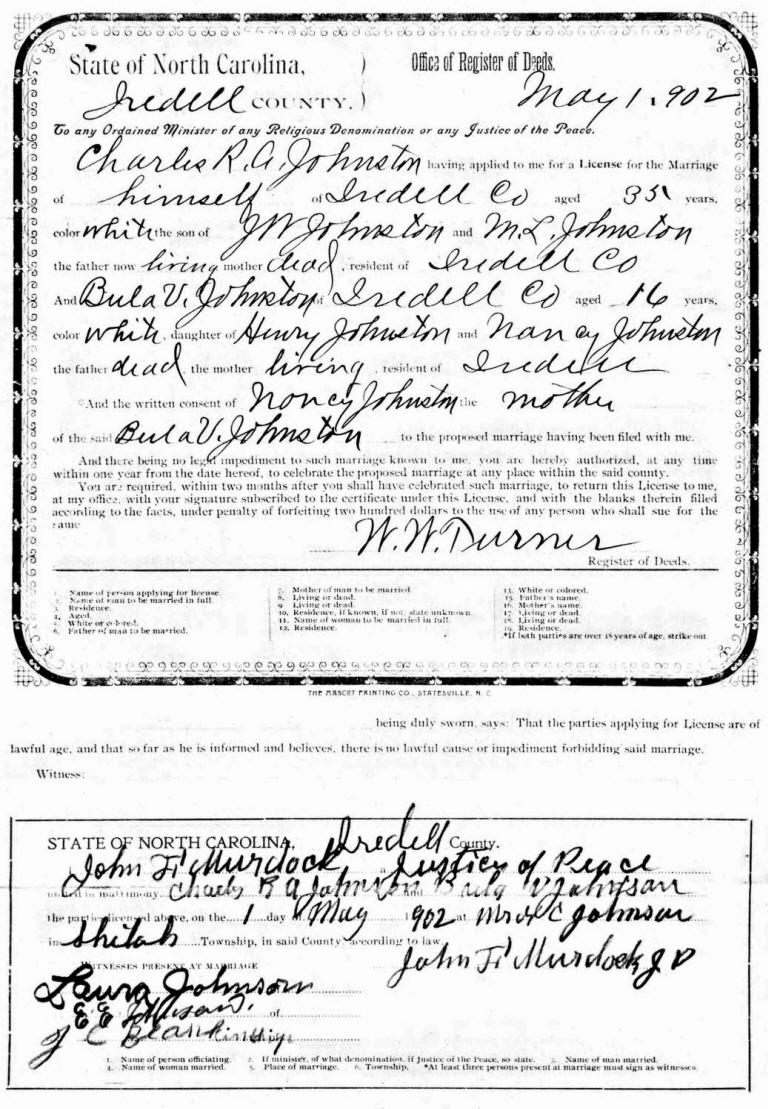 State of North Carolina, ) Office of Register of Deeds.
Iredell COUNTY. ) May 1, 1902
To any Ordained Minister of any Religious Denomination or any Justice of the Peace.
Charles R. A. Johnston having applied to me for a License for the Marriage
of himself of Iredell Co aged 35 years,
color white the son of J W Johnston and M. L. Johnston
the father now living mother dead, resident of Iredell Co
And Bula V. Johnston of Iredell Co aged 16 years,
color white, daughter of Henry Johnston and Nancy Johnston
the father dead, the mother living, resident of Iredell
*And the written consent of Nancy Johnston the mother
of the said Bula V. Johnston to the proposed marriage having been filed with me.
And there being no legal impediment to such marriage known to me, you are hereby authorized, at any time
within one year from the date hereof, to celebrate the proposed marriage at any place within the said county.
You are required, within two months after you shall have celebrated such marriage, to return this License to me,
at my office, with your signature subscribed to the certificate under this License, and with the blanks therein filled
according to the facts, under penalty of forfeiting two hundred dollars to the use of any person who shall sue for the
same
W. W. Turner
Register of Deeds.
1. Name of person applying for license.
2. Name of man to be married in full.
3. Residence.
4. Aged.
5. White or colored.
6. Father of man to be married.
7. Mother of man to be married.
8. Living or dead.
9. Living or dead.
10. Residence, if known, if not, state unknown.
11. Name of woman to be married in full.
12. Residence.
13. White or colored.
15. Father's name.
16. Mother's name.
17. Living or dead.
18. Living or dead.
19. Residence.
*If both parties are over 18 years of age, strike out
THE MASCOT PRINTING CO., STATESVILLE, N. C.
being duly sworn, says: That the parties applying for License are of
lawful age, and that so far as he is informed and believes, there is no lawful cause or impediment forbidding said marriage.
Witness:
STATE OF NORTH CAROLINA, Iredell County.
John F. Murdock, a Justice of Peace
united in matrimony Charles R A Johnston and Bula V Johnson
the parties licensed above, on the 1 day of May 1902 at Johnson
in Shiloh Township, in said County according to law.
John F. Murdock J P
WITNESSES PRESENT AT MARRIAGE
Laura Johnson
E E of
J E Blankinship
1. Name of person officiating. 2. If minister, of what denomination, if Justice of the Peace, so state. 3. Name of man married.
4. Name of woman married. 5. Place of marriage. 6. Township. *At least three persons present at marriage must sign as witnesses.